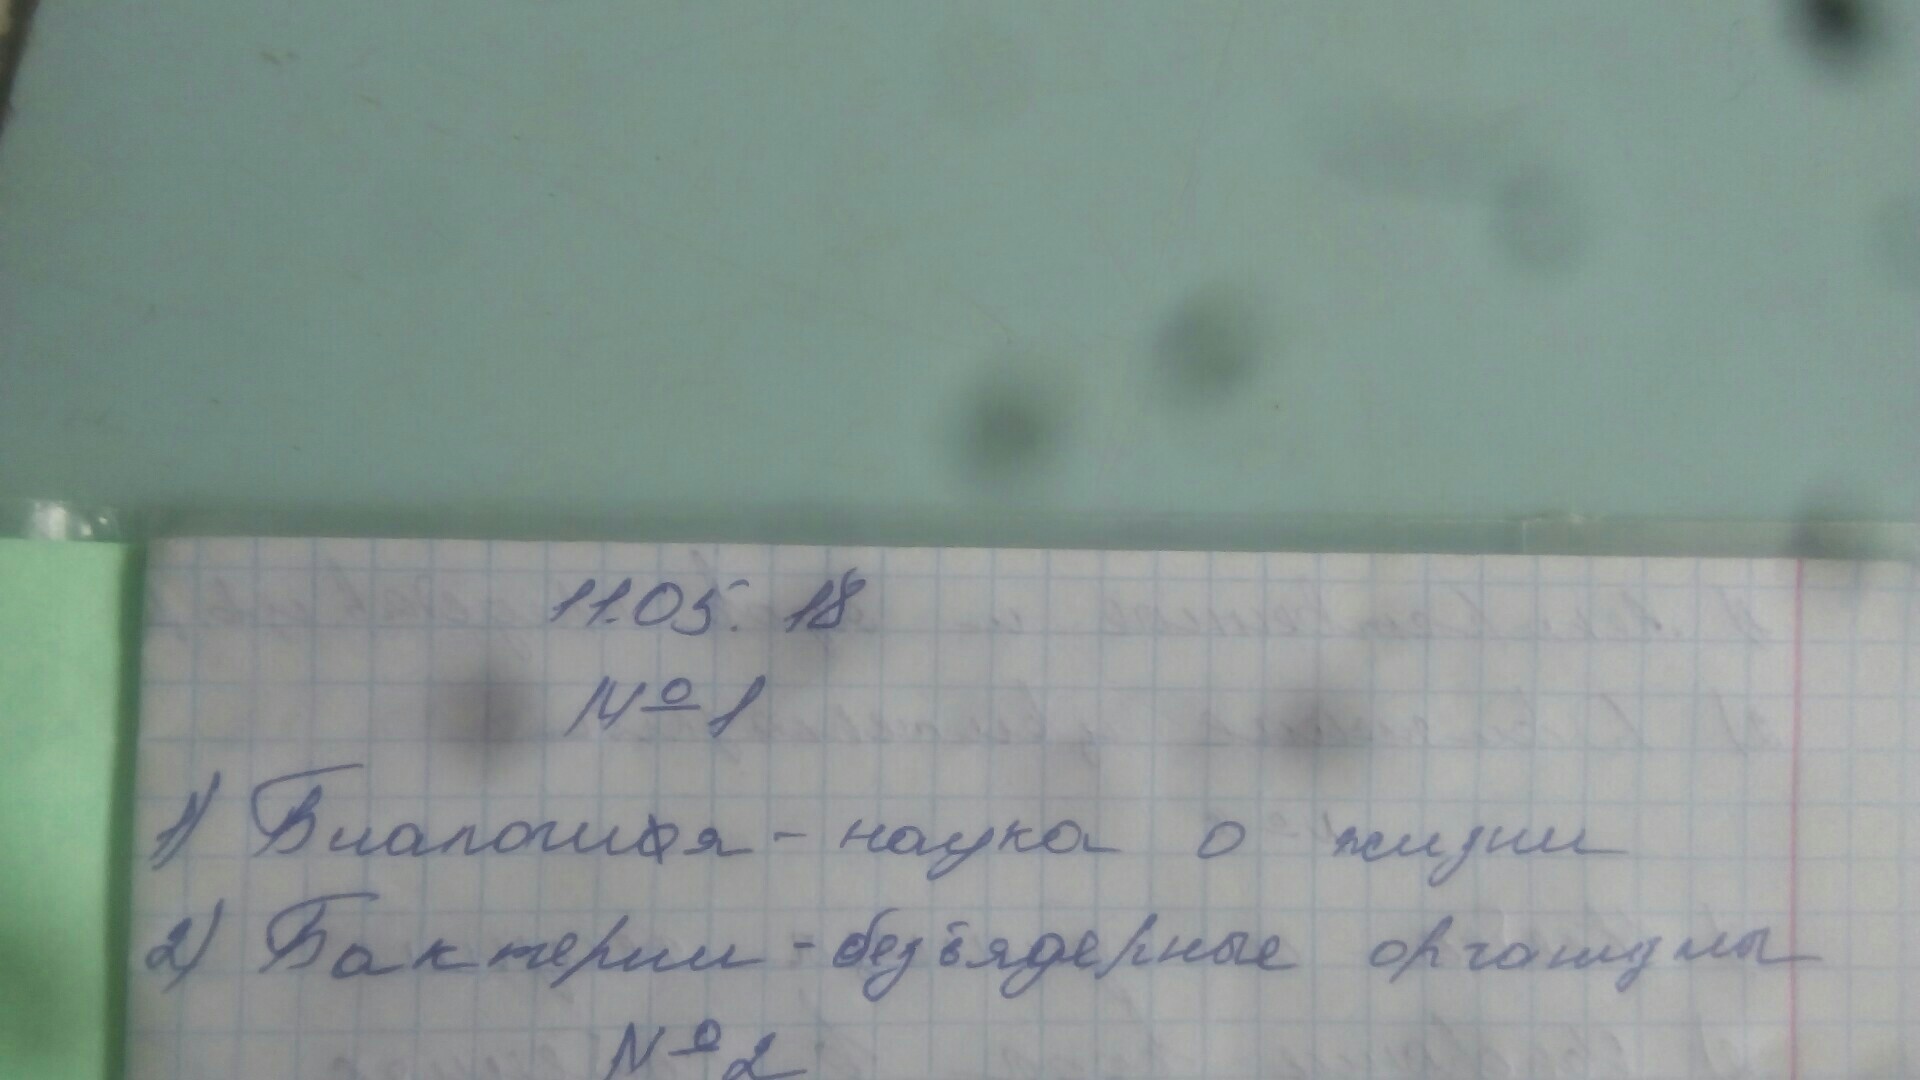 11.05.18
№1
1) Биология - наука о жизни
2) Бактерии - безъядерные организмы
№2